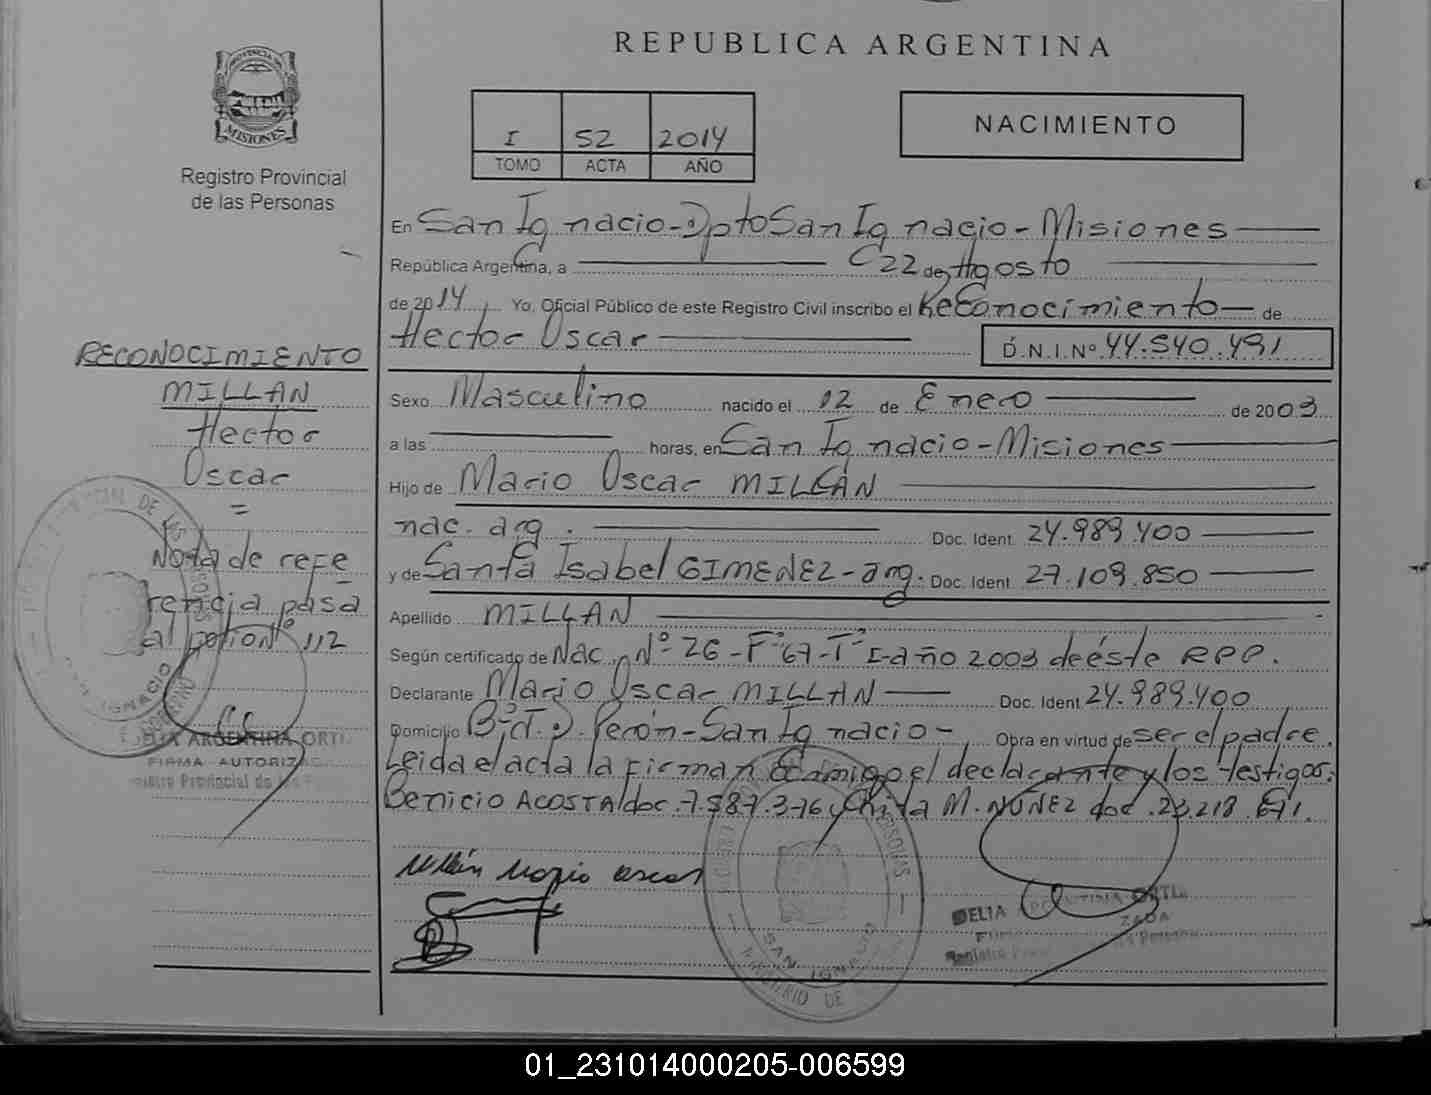 REPUBLICA ARGENTINA
PROVINCIA DE
MISIONES
Registro Provincial
de las Personas
I 52 2014
TOMO ACTA AÑO
NACIMIENTO
En San Ignacio-Dpto San Ignacio-Misiones
República Argentina, a 22 de Agosto
de 2014 Yo, Oficial Público de este Registro Civil inscribo el Reconocimiento de
Hector Oscar D.N.I.Nº 44.540.491
Sexo Masculino nacido el 12 de Enero de 2003
a las horas, en San Ignacio-Misiones
Hijo de Mario Oscar MILLAN
nac. arg. Doc. Ident. 24.989.400
y de Santa Isabel GIMENEZ-arg. Doc. Ident. 27.109.850
Apellido MILLAN
Según certificado de Nac. Nº 26-Fº67-Tº I-año 2003 de éste RPP.
Declarante Mario Oscar MILLAN Doc. Ident. 24.989.400
Domicilio Bº J.D. Perón-San Ignacio-, Obra en virtud de ser el padre.
Leida el acta la firman conmigo el declarante y los testigos:
Benicio ACOSTA doc. 7.587.376 y M. NUÑEZ doc. 23.218.671.
Millán Mario oscar
RECONOCIMIENTO
MILLAN
Hector
Oscar
=
Nota de refe
rencia pasa
al folio Nº 112
DELIA ARGENTINA ORTI
FIRMA AUTORIZ
Registro Provincial de las
SAN IGNACIO
DELIA ARGENTINA ORTI
ZADA
Registro
01_231014000205-006599